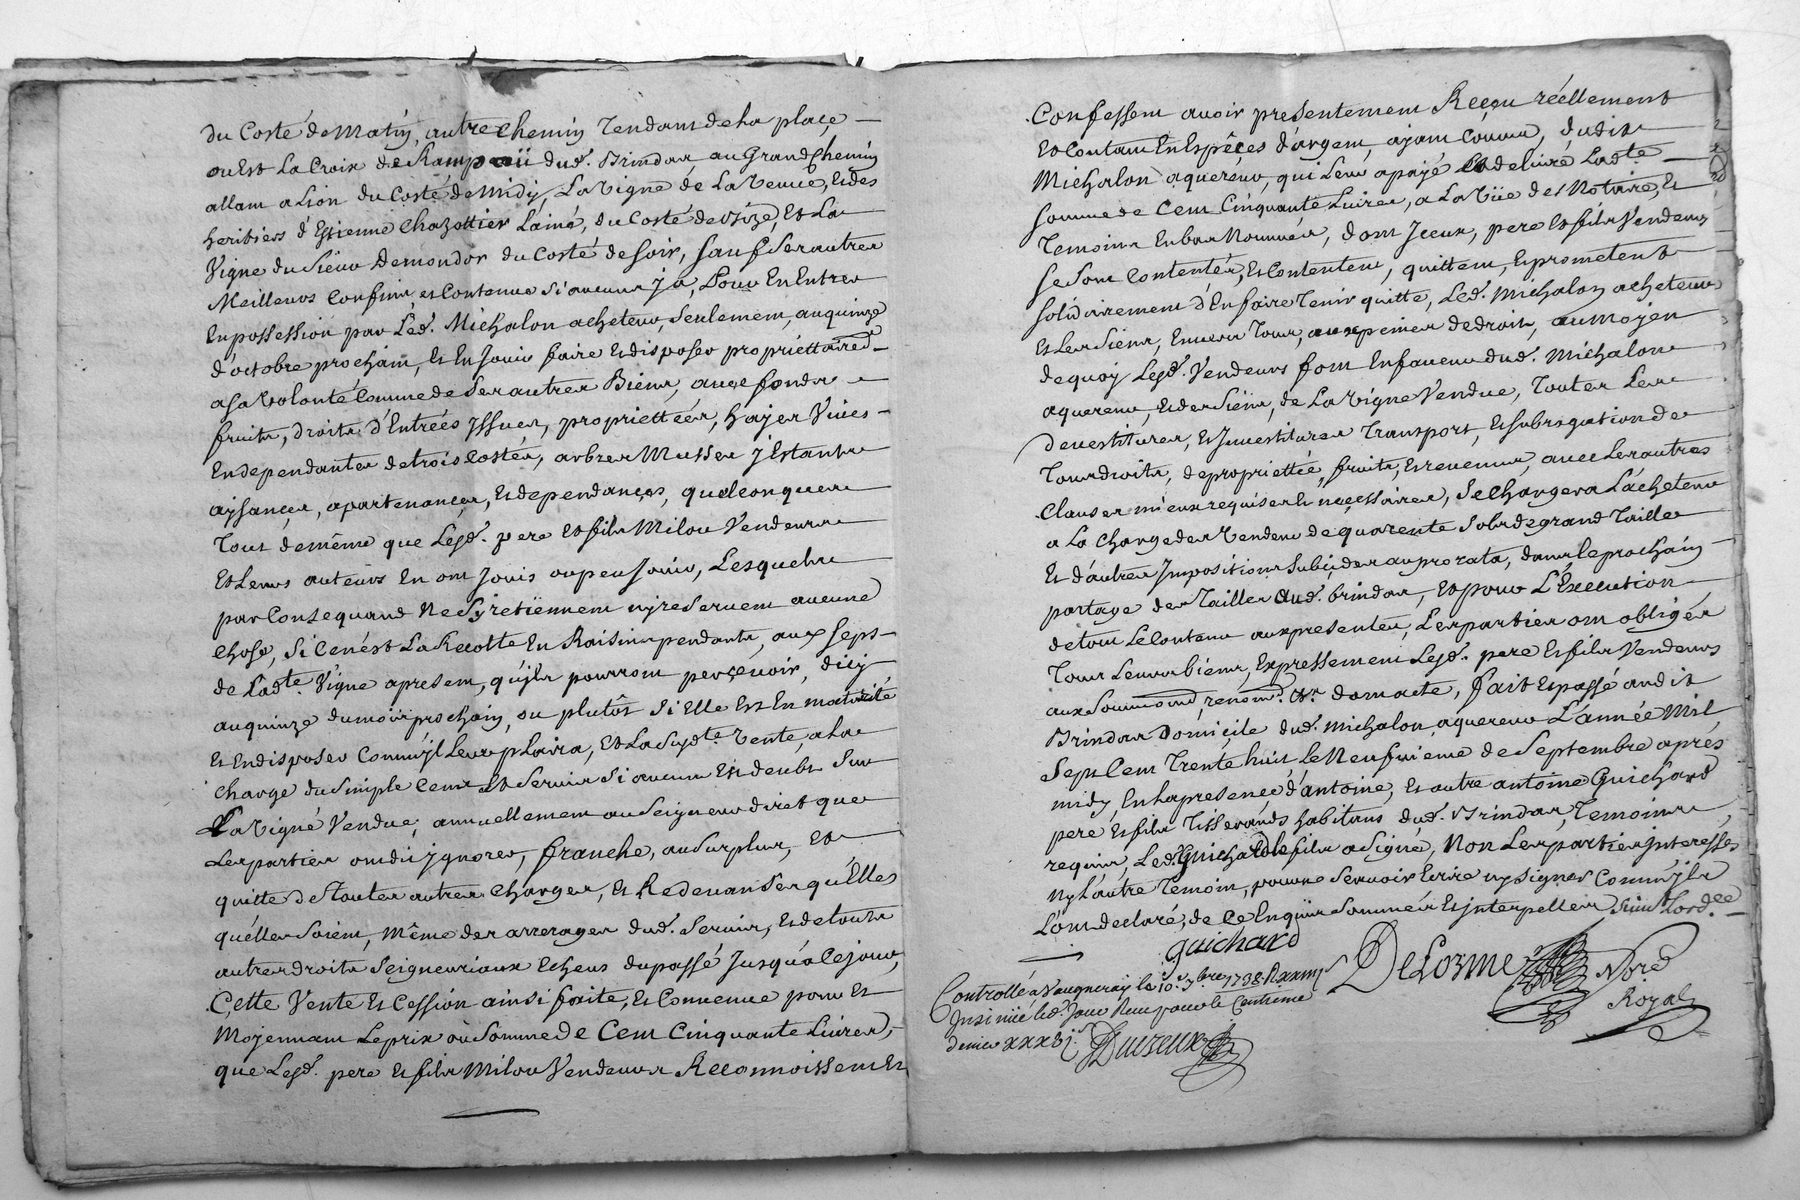 du Costé de Matin, autre chemin Tendant de la plaçe
ou Est La Croix de Rampaü dud. Brindas au Grand Chemin
allant a Lion du Costé de Midy, La Vigne de La Veuve, Et des
heritiers d'Estienne Chazottier Lainé, du Costé de vize, Et La
Vigne du Sieur Demondor du Costé de soir, sauf ses autres
Meilleurs Confins, et Contenus Si aucuns y a, Pour En Entrer
En possession par Led. Michalon acheteur, seulement, au quinze
d'octobre prochain, Et En Jouir faire Et disposer propriettaired
a sa volonté Comme de Ses autres Biens, avec fonds
fruits, droits d'Entrées Issues, propriettées, hayes Vives
En dependantes de trois Costés, arbres Musses y Estants
aysançes, apartenances, Et dependançes, quelconques
Tout de même que Lesd. pere Et fils Milou Vendeurs
Et Leurs auteurs En ont Jouis ou peu Jouir, Lesquels
par Consequand Ne Sy retiennent ny reservent aucune
Chose, Si Cenést La Recolte En Raisins pendants, aux Seps
de Ladte. Vigne apresent, qu'ils pourront perçevoir, d'icy
au quinze du mois prochain, ou plutôt Si Elle Est En maturité
Et En disposer Comm'yl Leur plaira, Et La Susdte. Vente, a La
Charge du Simple Cens Et Servis Si aucun Est deubt Sur
La Vigne Vendue, annuellement au Seigneur direct que
Les parties ont dit ygnorer, franche, au Surplus, Et
quitte de toutes autres Charges, Et Redevanses qu'Elles
qu'elles soient, même des arrerages dud. Servis, Et de touts
autres droits Seigneuriaux Echeus du passé Jusqu'a Ce jour,
Cette Vente Et Cession ainsi faite, Et Convenue pour Et
Moyennant Le prix ou Somme de Cent Cinquante Livres,
que Lesd. pere Et fils Milou Vendeurs Reconnoissent Et
Confessent avoir presentement Reçeu réellement
Et Contant En Espêçes d'argent, ayant Cours, dudit
Michalon aquereur, qui Leur a payé Et delivré Ladte.
somme de Cent Cinquante Livres, a La Vüe des Notaire, Et
Temoins En bas Nommés, dont Iceux, pere Et fils Vendeurs
se Sont Contentés, Et Contentent, quittent, Et prometent
solidairement d'En faire Tenir quitte, Led. Michalon acheteur
Et Les Siens, Envers Tous, aux peines de droit, au Moyen
de quoy Lesd. Vendeurs font En faveur dud. Michalon
aquereur, Et des Siens, de La Vigne Vendue, Toutes Les
devestitures, Et Investitures Transport, Et subrogation de
Tous droits, de propriettée, fruits, Et revenus, avec Les autres
Clauses mieux requises Et neçessaires, Se Chargera L'acheteur
a La charge des Vendeurs de quarente sols de grand Taille
Et d'autres Impositions Subcides au prorata, dans le prochain
partage des Tailles dud. brindas, Et pour L'Execution
de tout Le Contenu aux presentes, Les parties ont obligés
Tous Leurs biens, Expressement Lesd. pere Et fils Vendeurs
aux Soumons. renons. Et. dont acte, fait Et passé audit
Brindas Domicile dud. Michalon, aquereur L'année Mil
Sept Cent Trente huit Le Neufvieme de Septembre aprés
midy, En La presence d'antoine, Et autre antoine Guichard
pere Et fils Tisserands habitans dud. Brindas, Temoins
requis, Led. Guichard le fils a Signé, Non Les parties Interessées
Ny L'autre Temoin, pour ne Sçavoir Ecrire ny signer Comm'yls
L'ont declaré, de Ce Enquis Sommés Et Interpellés Suivt. Lord.ce
Guichard
DeLorme Nore
Royal
Controllé a Vaugneray le 10.e 7.bre 1738. R xxiiijs
Insinüé led. Jour Reçu pour le Centieme
denier xxx